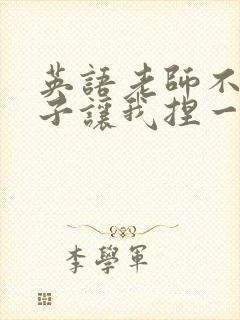 英語老師不
子讓我捏一
李學軍